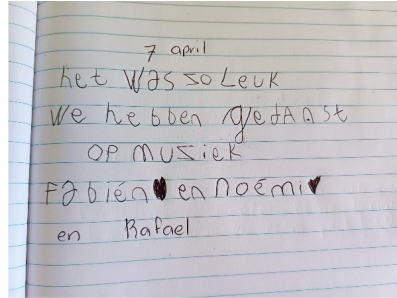 7 april
het was so Leuk
We hebben gedanst
op muziek
Fabién♥ en noémi♥
en Rafael